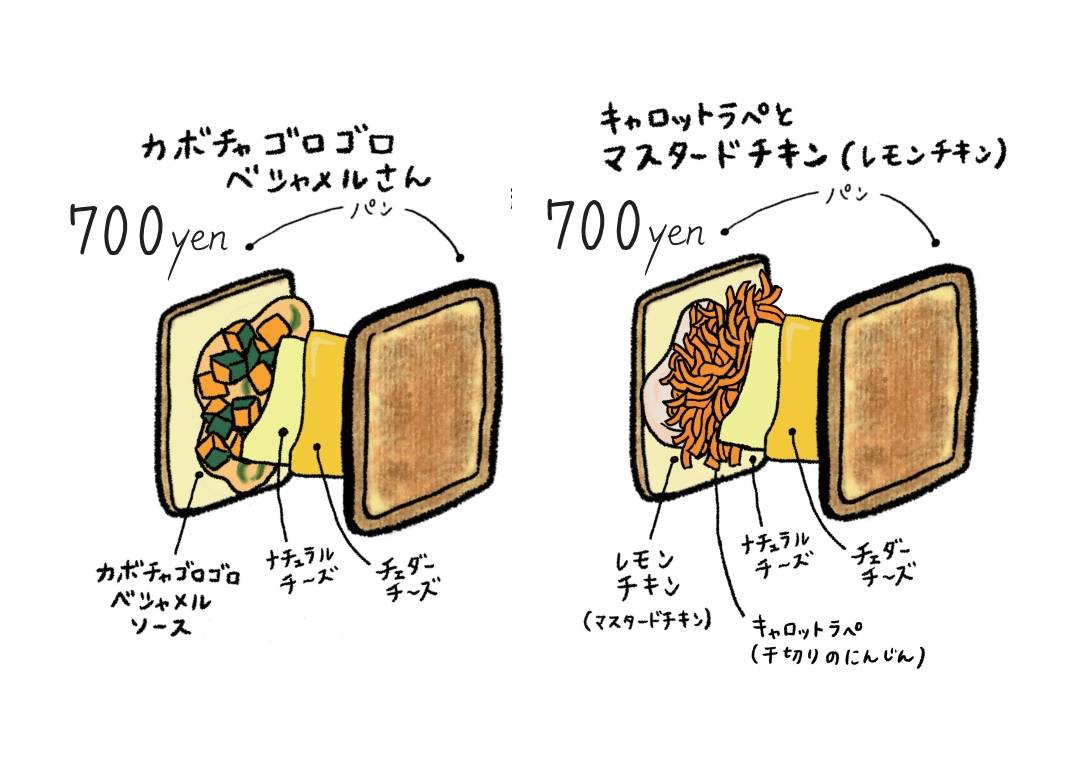 カボチャゴロゴロ
ベシャメルさん
700yen
パン
カボチャゴロゴロ
ベシャメル
ソース
ナチュラル
チーズ
チェダー
チーズ
キャロットラペと
マスタードチキン(レモンチキン)
700yen
パン
レモン
チキン
(マスタードチキン)
ナチュラル
チーズ
チェダー
チーズ
キャロットラペ
(千切りのにんじん)